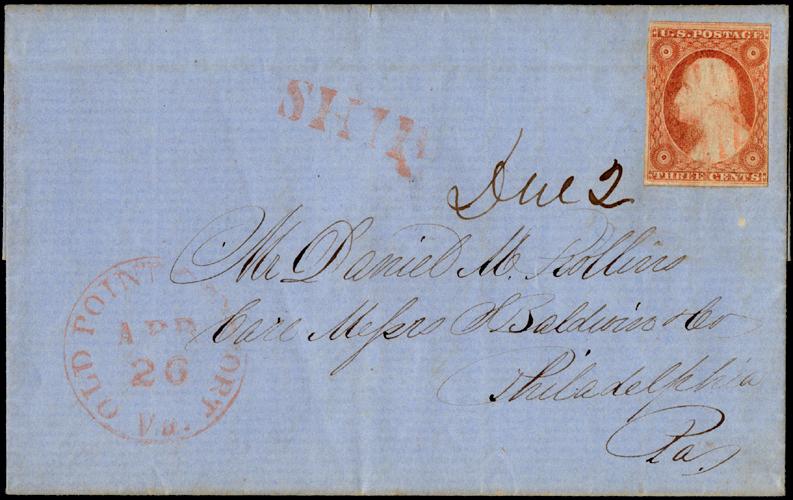 U.S. POSTAGE
THREE CENTS
SHIP
Due 2
Mr Daniel M. Rollins
Care Messrs S Baldwin & Co
Philadelphia
Pa
OLD POINT COMFORT
APR
26
Va.